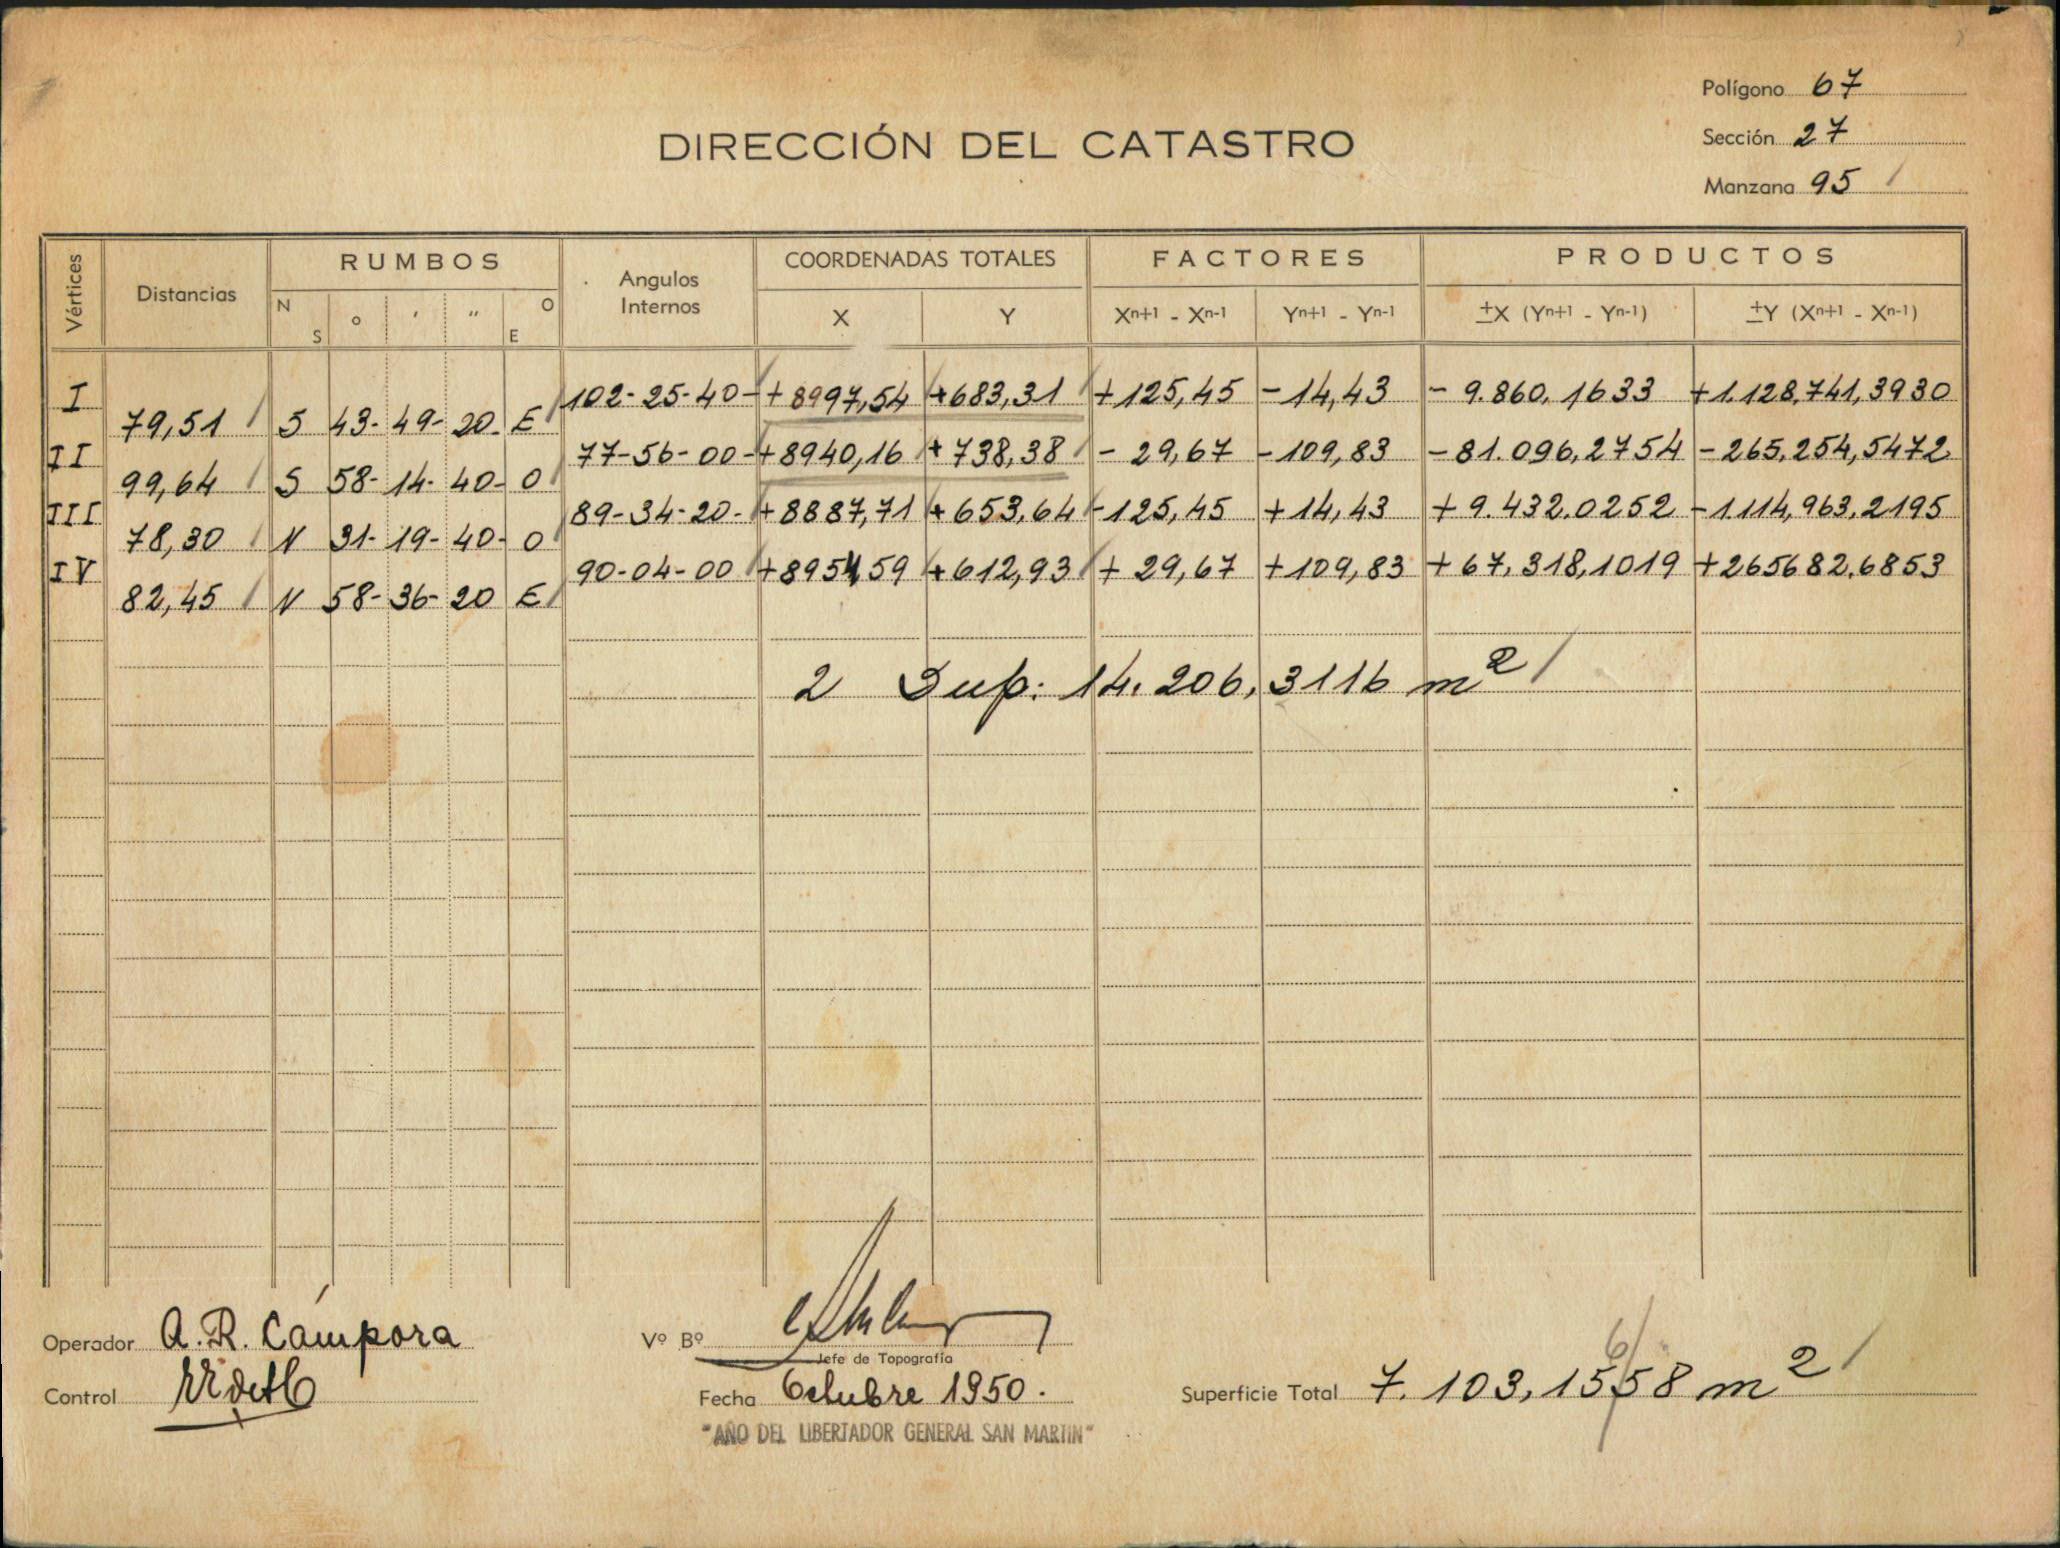 Polígono 67
DIRECCIÓN DEL CATASTRO
Sección 27
Manzana 95
Vértices Distancias RUMBOS Angulos Internos COORDENADAS TOTALES FACTORES PRODUCTOS
N S ° ' " O E X Y Xn+1 - Xn-1 Yn+1 - Yn-1 ±X (Yn+1 - Yn-1) ±Y (Xn+1 - Xn-1)
I 102-25-40- +8997,54 +683,31 +125,45 -14,43 - 9.860,1633 +1.128,741,3930
79,51 S 43- 49- 20- E
II 77-56-00- +8940,16 +738,38 - 29,67 -109,83 -81.096,2754 -265,254,5472
99,64 S 58- 14- 40- O
III 89-34-20- +8887,71 +653,64 -125,45 +14,43 + 9.432,0252 -1.114,963,2195
78,30 N 31- 19- 40- O
IV 90-04-00 +8954,59 +612,93 + 29,67 +109,83 +67,318,1019 +265682,6853
82,45 N 58- 36- 20 E
2 Sup: 14.206,3116 m²
Operador A. R. Cámpora
Vº Bº
Jefe de Topografía
Control
Fecha Octubre 1950.
Superficie Total 7.103,1558 m²
6
"AÑO DEL LIBERTADOR GENERAL SAN MARTIN"